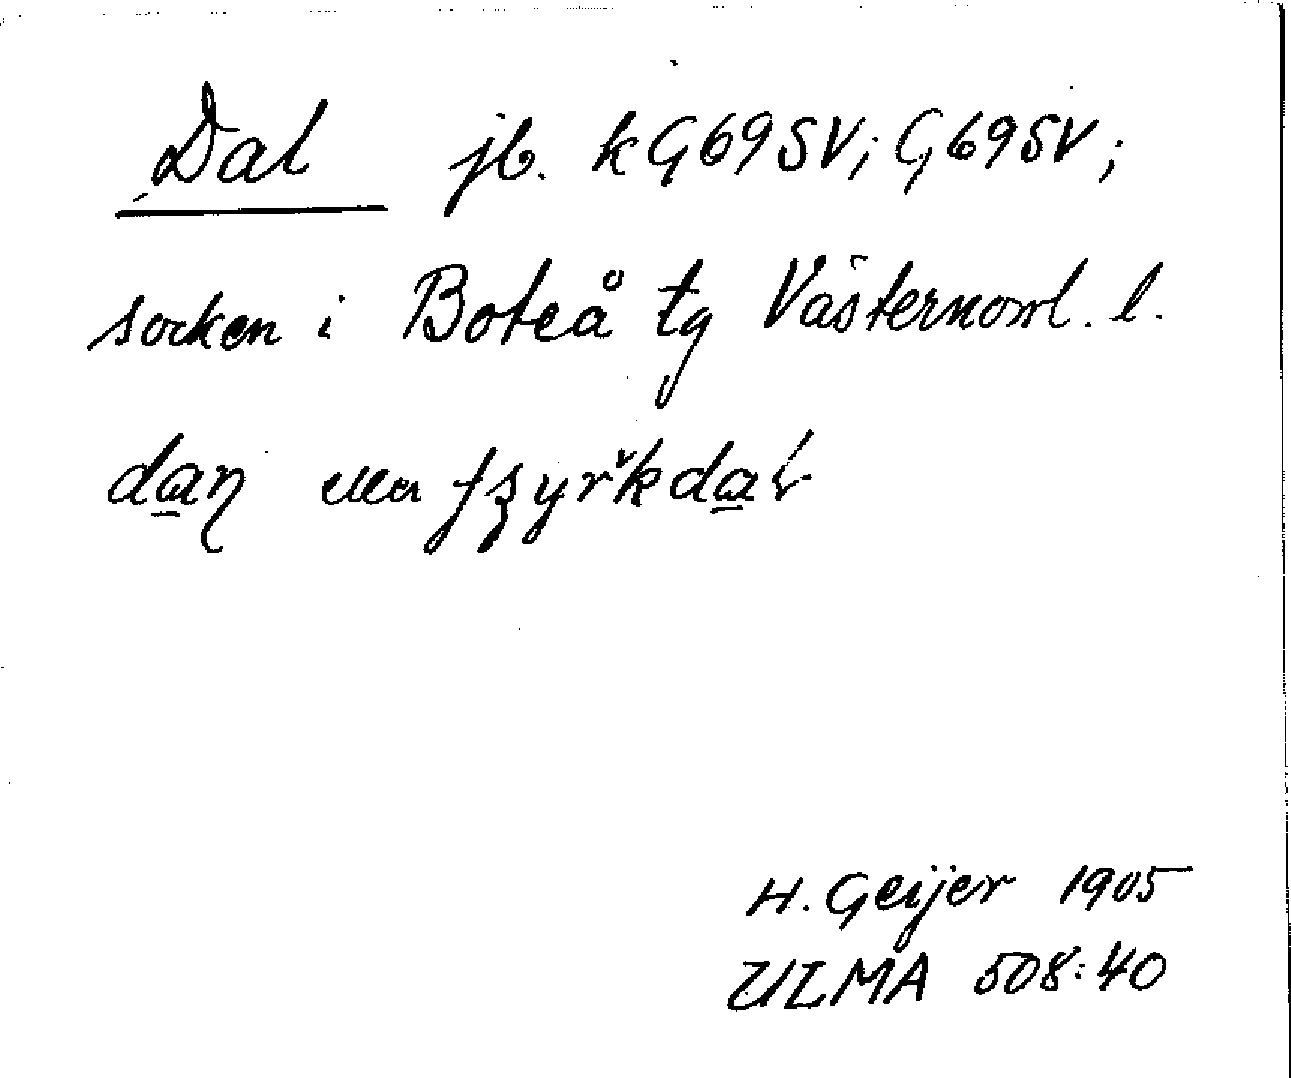 Dal jb. k G69SV; G69SV;
socken i Boteå tg Västernorrl. l.
daṉ
H. Geijer 1905
ULMA 508:40